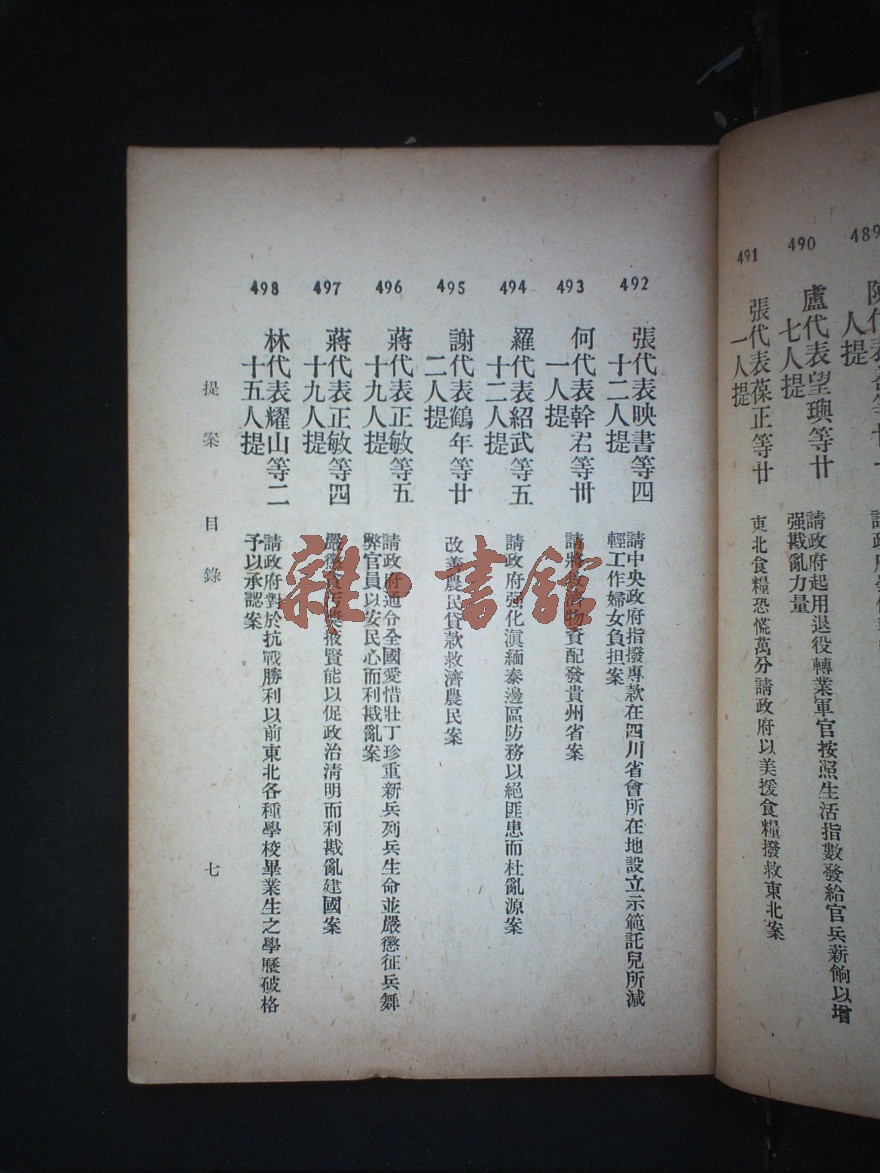 489
490
盧代表望璵等廿
七人提
請政府起用退役轉業軍官按照生活指數發給官兵薪餉以增
强戡亂力量
491
張代表葆正等廿
一人提
東北食糧恐慌萬分請政府以美援食糧撥救東北案
492
張代表映書等四
十二人提
請中央政府指撥專款在四川省會所在地設立示範託兒所減
輕工作婦女負担案
493
何代表幹君等卅
一人提
請將救濟物資配發貴州省案
494
羅代表紹武等五
十二人提
請政府强化滇緬泰邊區防務以絕匪患而杜亂源案
495
謝代表鶴年等廿
二人提
改善農民貸款救濟農民案
496
蔣代表正敏等五
十九人提
請政府通令全國愛惜壯丁珍重新兵列兵生命並嚴懲征兵舞
弊官員以安民心而利戡亂案
497
蔣代表正敏等四
十九人提
嚴懲貪污獎掖賢能以促政治清明而利戡亂建國案
498
林代表耀山等二
十五人提
請政府對於抗戰勝利以前東北各種學校畢業生之學歷破格
予以承認案
提案目錄
七
雜·書館